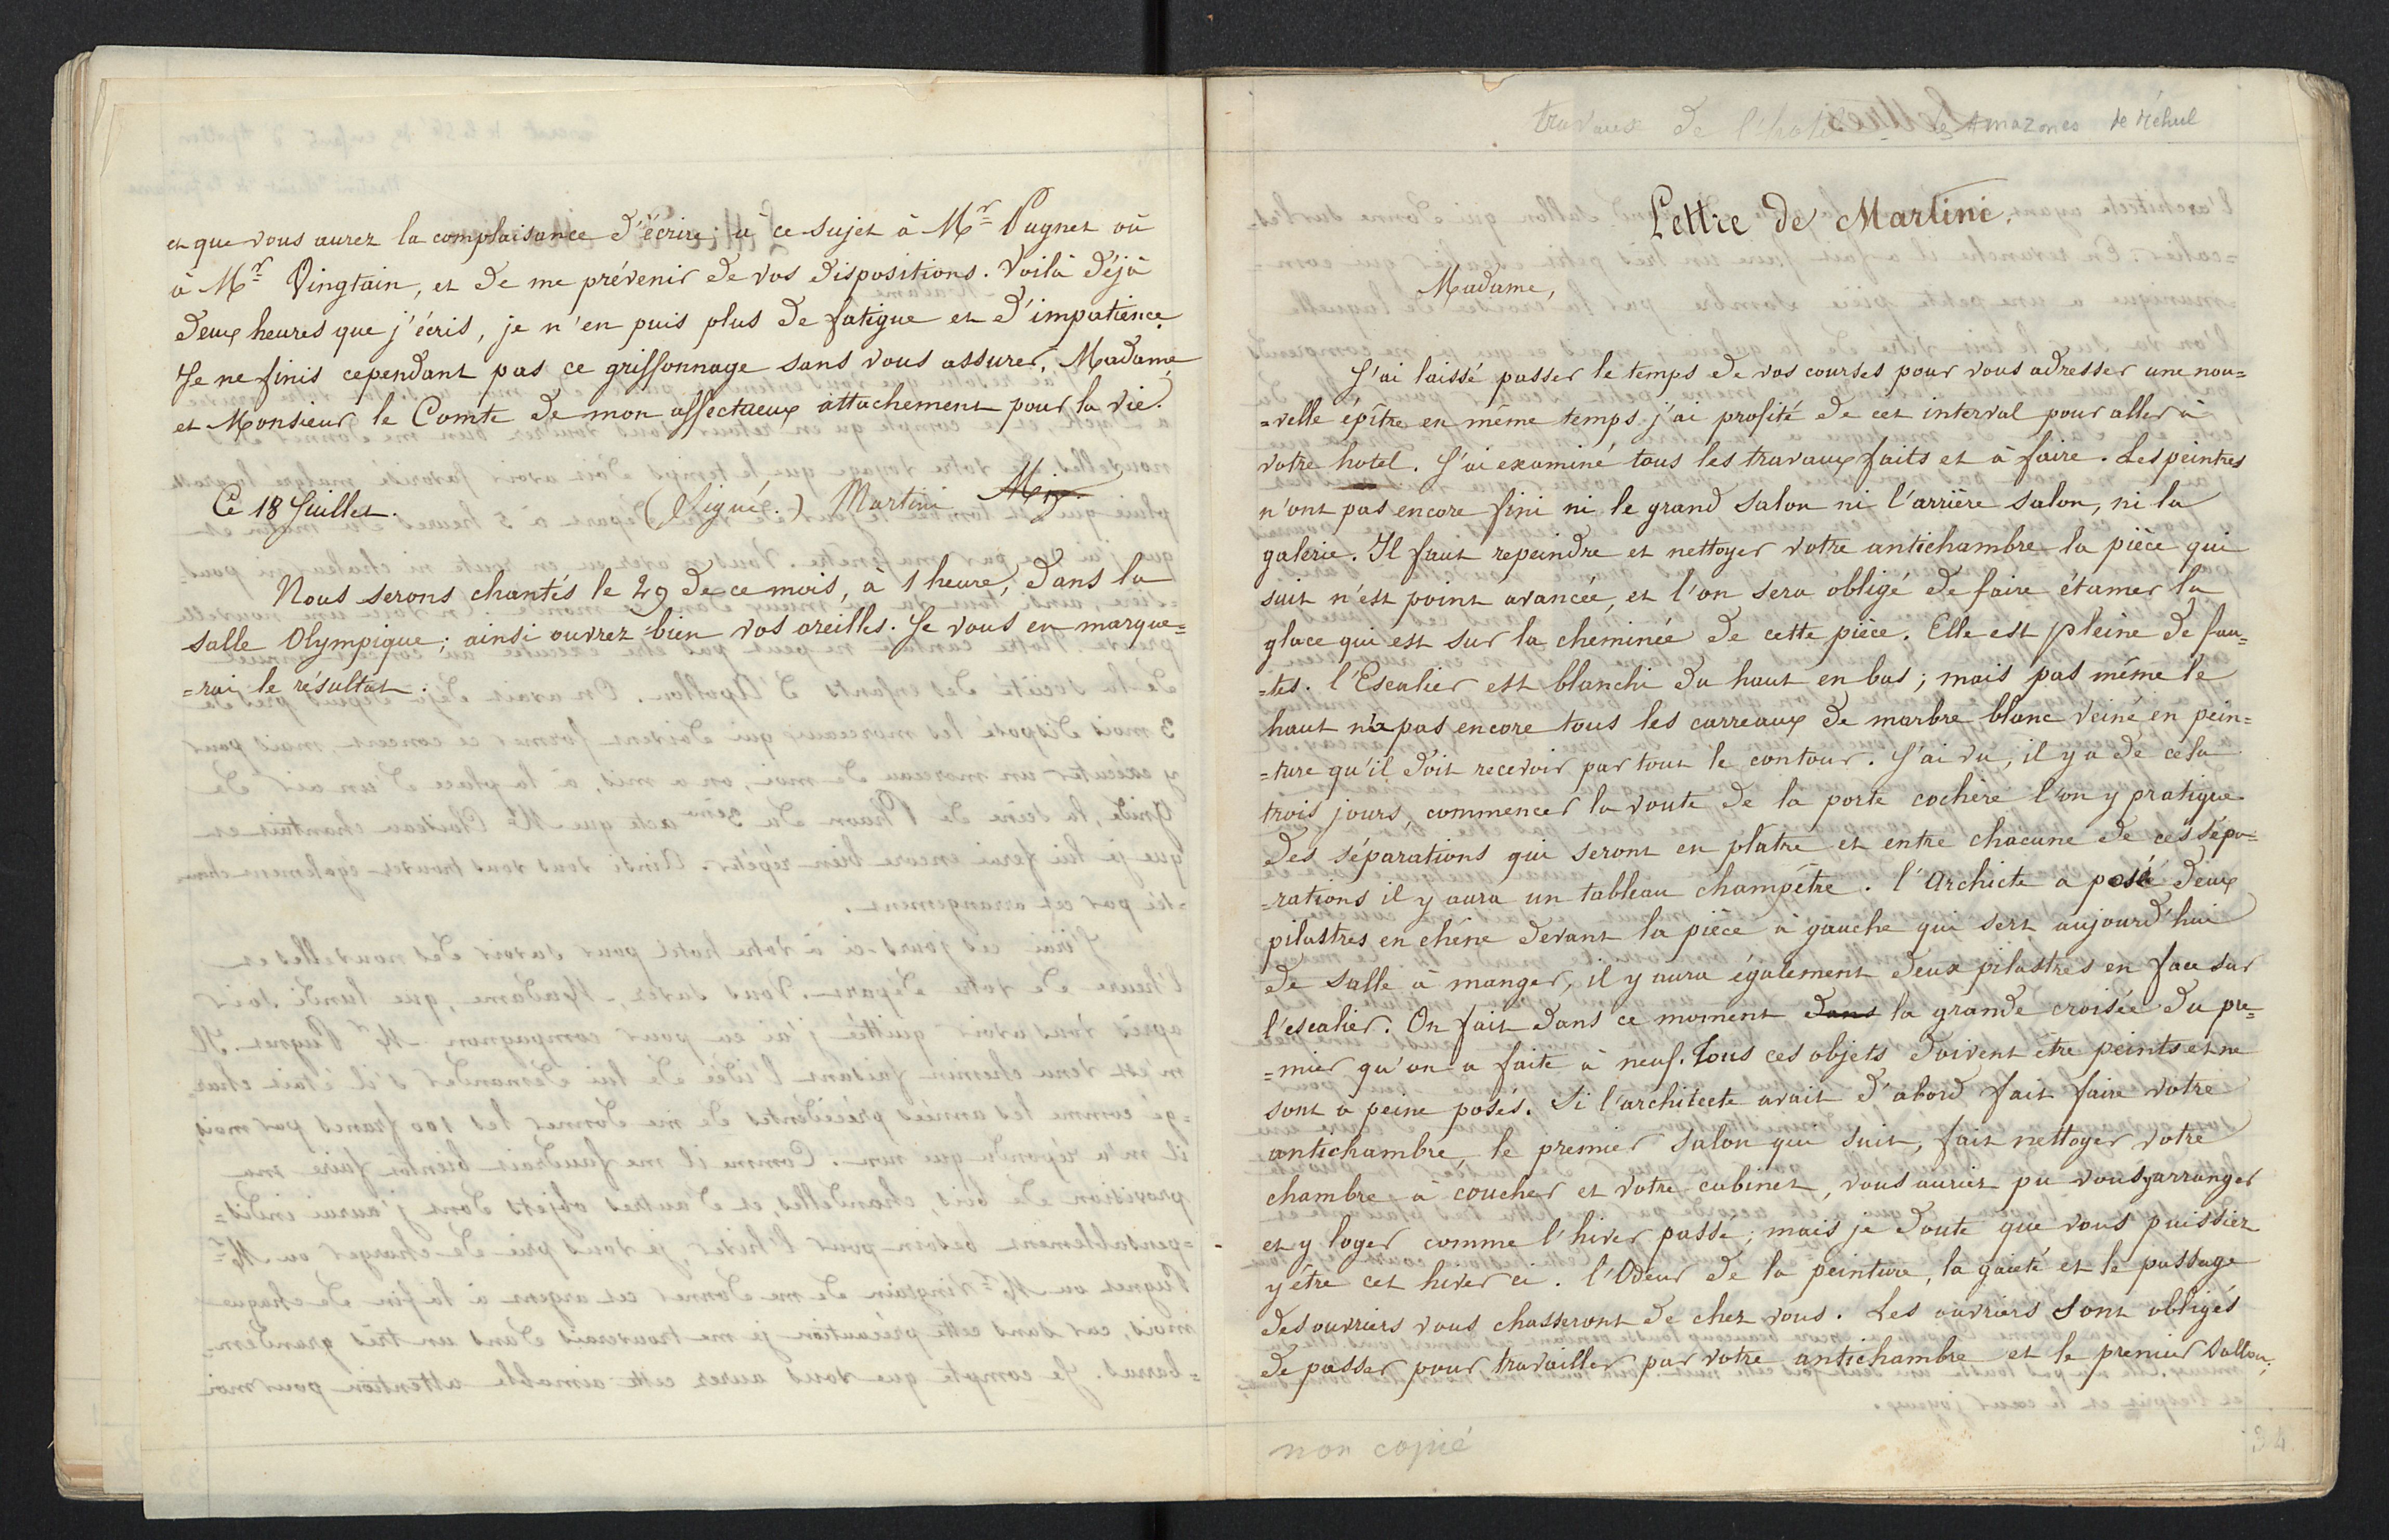 et que vous aurez la complaisance d'écrire, à ce sujet à Mr Pugnet où
à Mr Vingtain, et de me prévenir de vos dispositions. Voilà déjà
deux heures que j'écris, je n'en puis plus de fatigue et d'impatience.
Je ne finis cependant pas ce griffonnage sans vous assurer, Madame
et Monsieur le Comte de mon affectueux attachement pour la vie.
Ce 18 Juillet. (Signé.) Martini
Nous serons chantés le 29 de ce mois, à 1 heure, dans la
salle Olympique; ainsi ouvrez bien vos oreilles. Je vous en marque=
=rai le résultat.
travaux de l'hotel les Amazones de Méhul
Lettre de Martini.
Madame,
J'ai laissé passer le temps de vos courses pour vous adresser une nou=
=velle épître en même temps j'ai profité de cet interval pour aller à
votre hotel. J'ai examiné tous les travaux faits et à faire. Les peintres
n'ont pas encore fini ni le grand salon ni l'arrière salon, ni la
galerie. Il faut repeindre et nettoyer votre antichambre la pièce qui
suit n'est point avancée, et l'on sera obligé de faire étamer la
glace qui est sur la cheminée de cette pièce. Elle est pleine de fau=
=tes. l'Escalier est blanchi du haut en bas; mais pas même le
haut n'a pas encore tous les carreaux de marbre blanc veiné en pein=
=ture qu'il doit recevoir par tout le contour. J'ai vu, il y a de cela
trois jours, commencer la voute de la porte cochère l'on y pratique
des séparations qui seront en plâtre et entre chacune de ces sépa=
=rations il y aura un tableau champêtre. l'Archicte a posé deux
pilastres en chêne devant la pièce à gauche qui sert aujourd'hui
de salle à manger, il y aura également deux pilastres en face sur
l'escalier. On fait dans ce moment dans la grande croisée du pre=
=mier qu'on a faite à neuf. Tous ces objets doivent être peints et ne
sont à peine posés. Si l'architecte avait d'abord fait faire votre
antichambre, le premier salon qui suit, fait nettoyer votre
chambre à coucher et votre cabinet, vous auriez pu vous y arranger
et y loger comme l'hiver passé; mais je doute que vous puissiez
y être cet hiver ci. l'Odeur de la peinture, la gaieté et le passage
des ouvriers vous chasseront de chez vous. Les ouvriers sont obligés
de passer pour travailler par votre antichambre et le premier sallon,
non copié
34